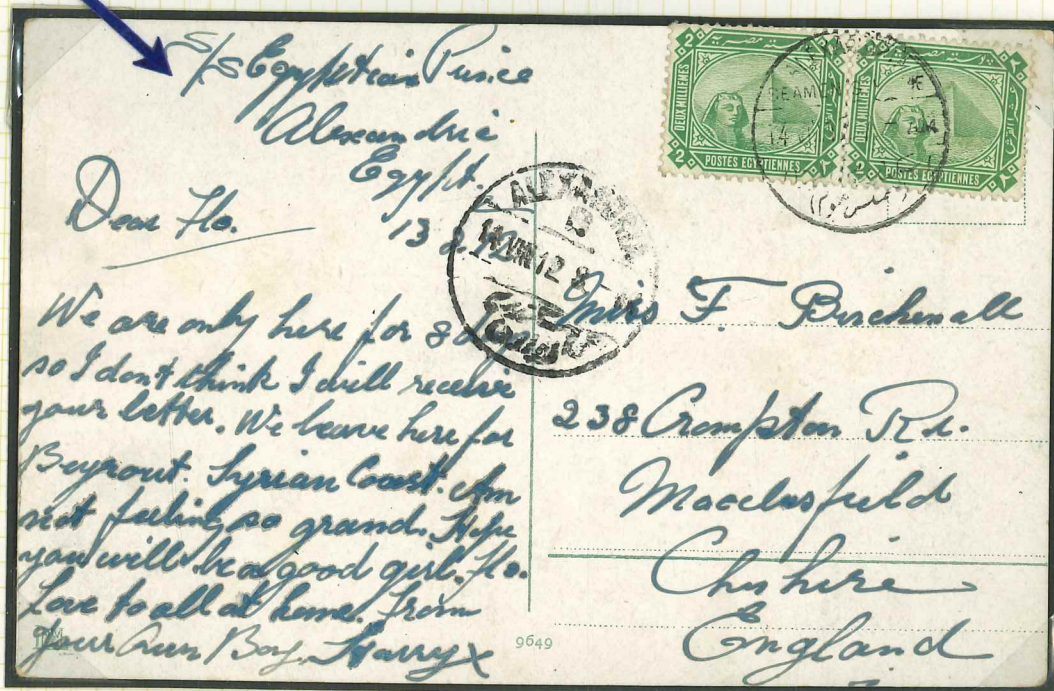 S/S Egyptian Prince
Alexandria
Egypt.
13 8 12
Dear Flo.
We are only here for
so I don't think I will receive
your letter. We leave here for
Beyrout. Syrian Coast. Am
not feeling so grand. Hope
you will be a good girl. Flo.
Love to all at home. From
your Own Boy. Harry x
2 DEUX MILLIEMES
POSTES EGYPTIENNES
2 DEUX MILLIEMES
POSTES EGYPTIENNES
14
AM
ALEXANDRIA
14 VIII 12 8
Miss F. Birchenall
238 Crompton Rd.
Macclesfield
Cheshire
England
9649